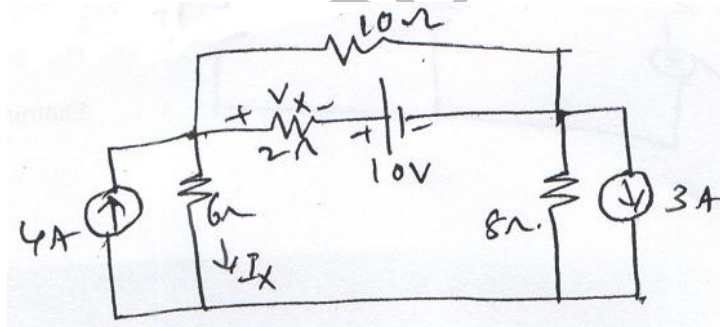 10Ω
+ Vx -
2Ω
+ -
10V
4A
6Ω
↓Ix
8Ω.
3A